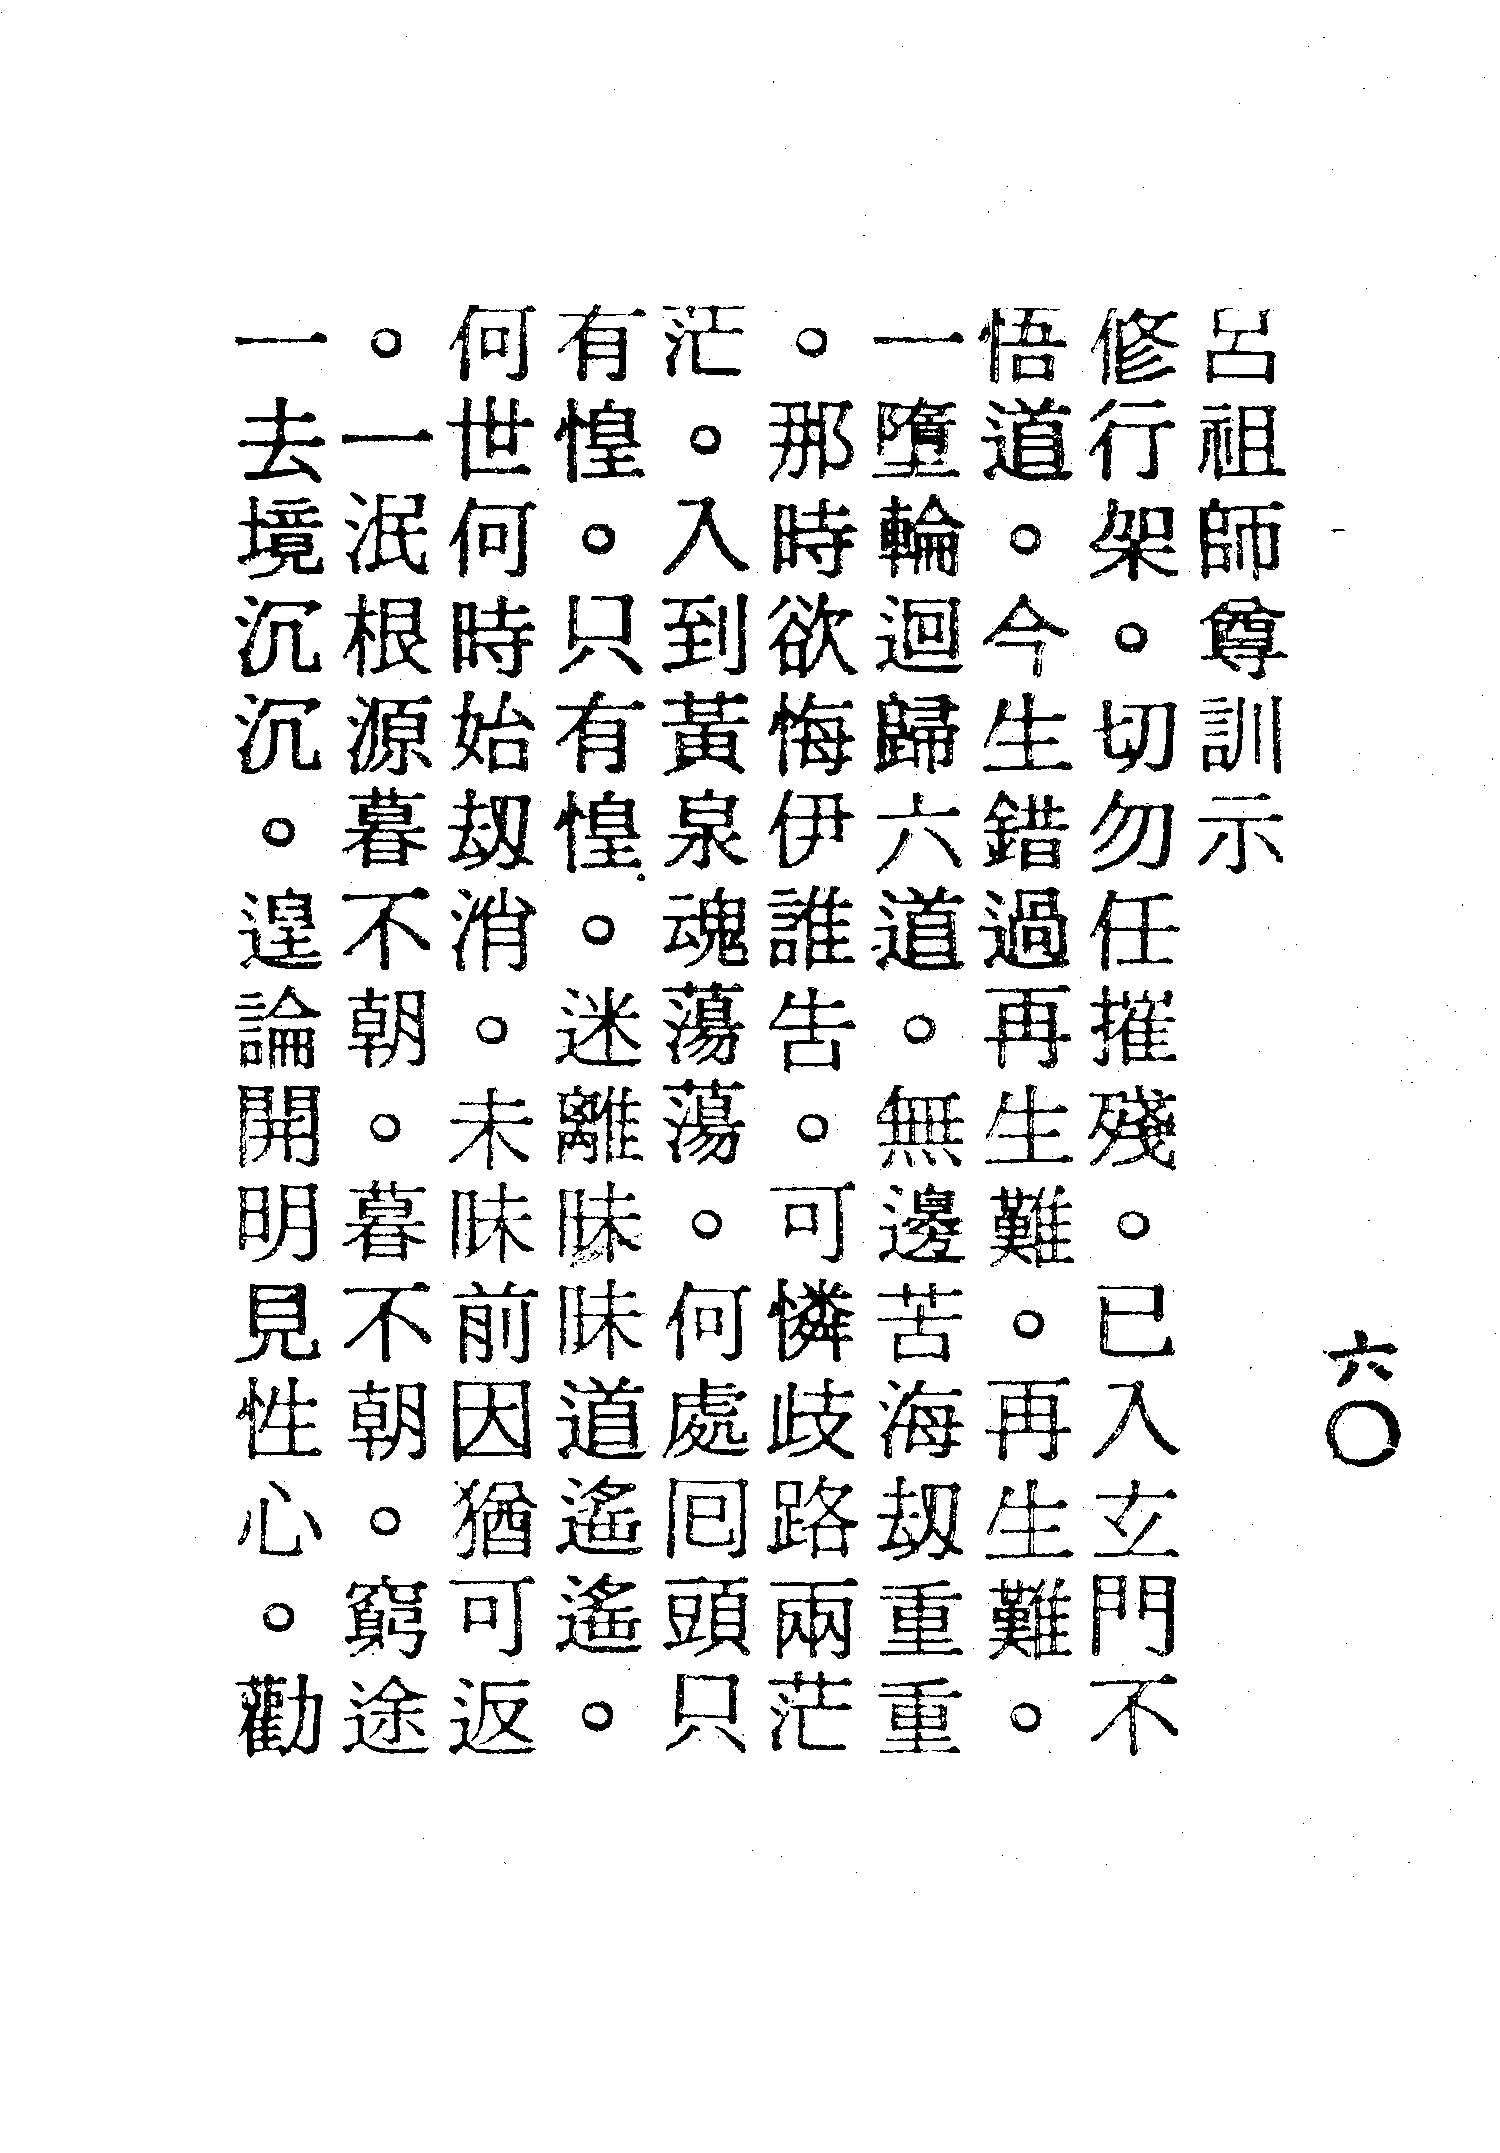 六〇
呂祖師尊訓示
修行架。切勿任摧殘。已入玄門不
悟道。今生錯過再生難。再生難。
一墮輪迴歸六道。無邊苦海刼重重
。那時欲悔伊誰告。可憐歧路兩茫
茫。入到黃泉魂蕩蕩。何處囘頭只
有惶。只有惶。迷離昧昧道遙遙。
何世何時始刼消。未昧前因猶可返
。一泯根源暮不朝。暮不朝。窮途
一去境沉沉。遑論開明見性心。勸